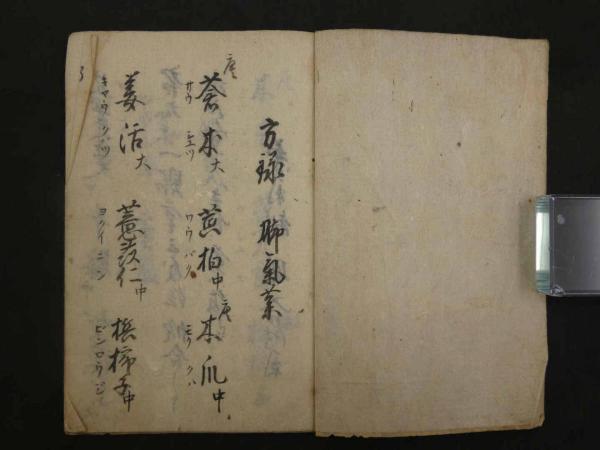 方錄 脚氣薬
唐蒼朮大 黄柏中 唐木瓜中
サウシユツ ワウバク モツクハ
羌活大 薏苡仁中 檳榔子中
キヤウクワツ ヨクイニン ビンロウジ